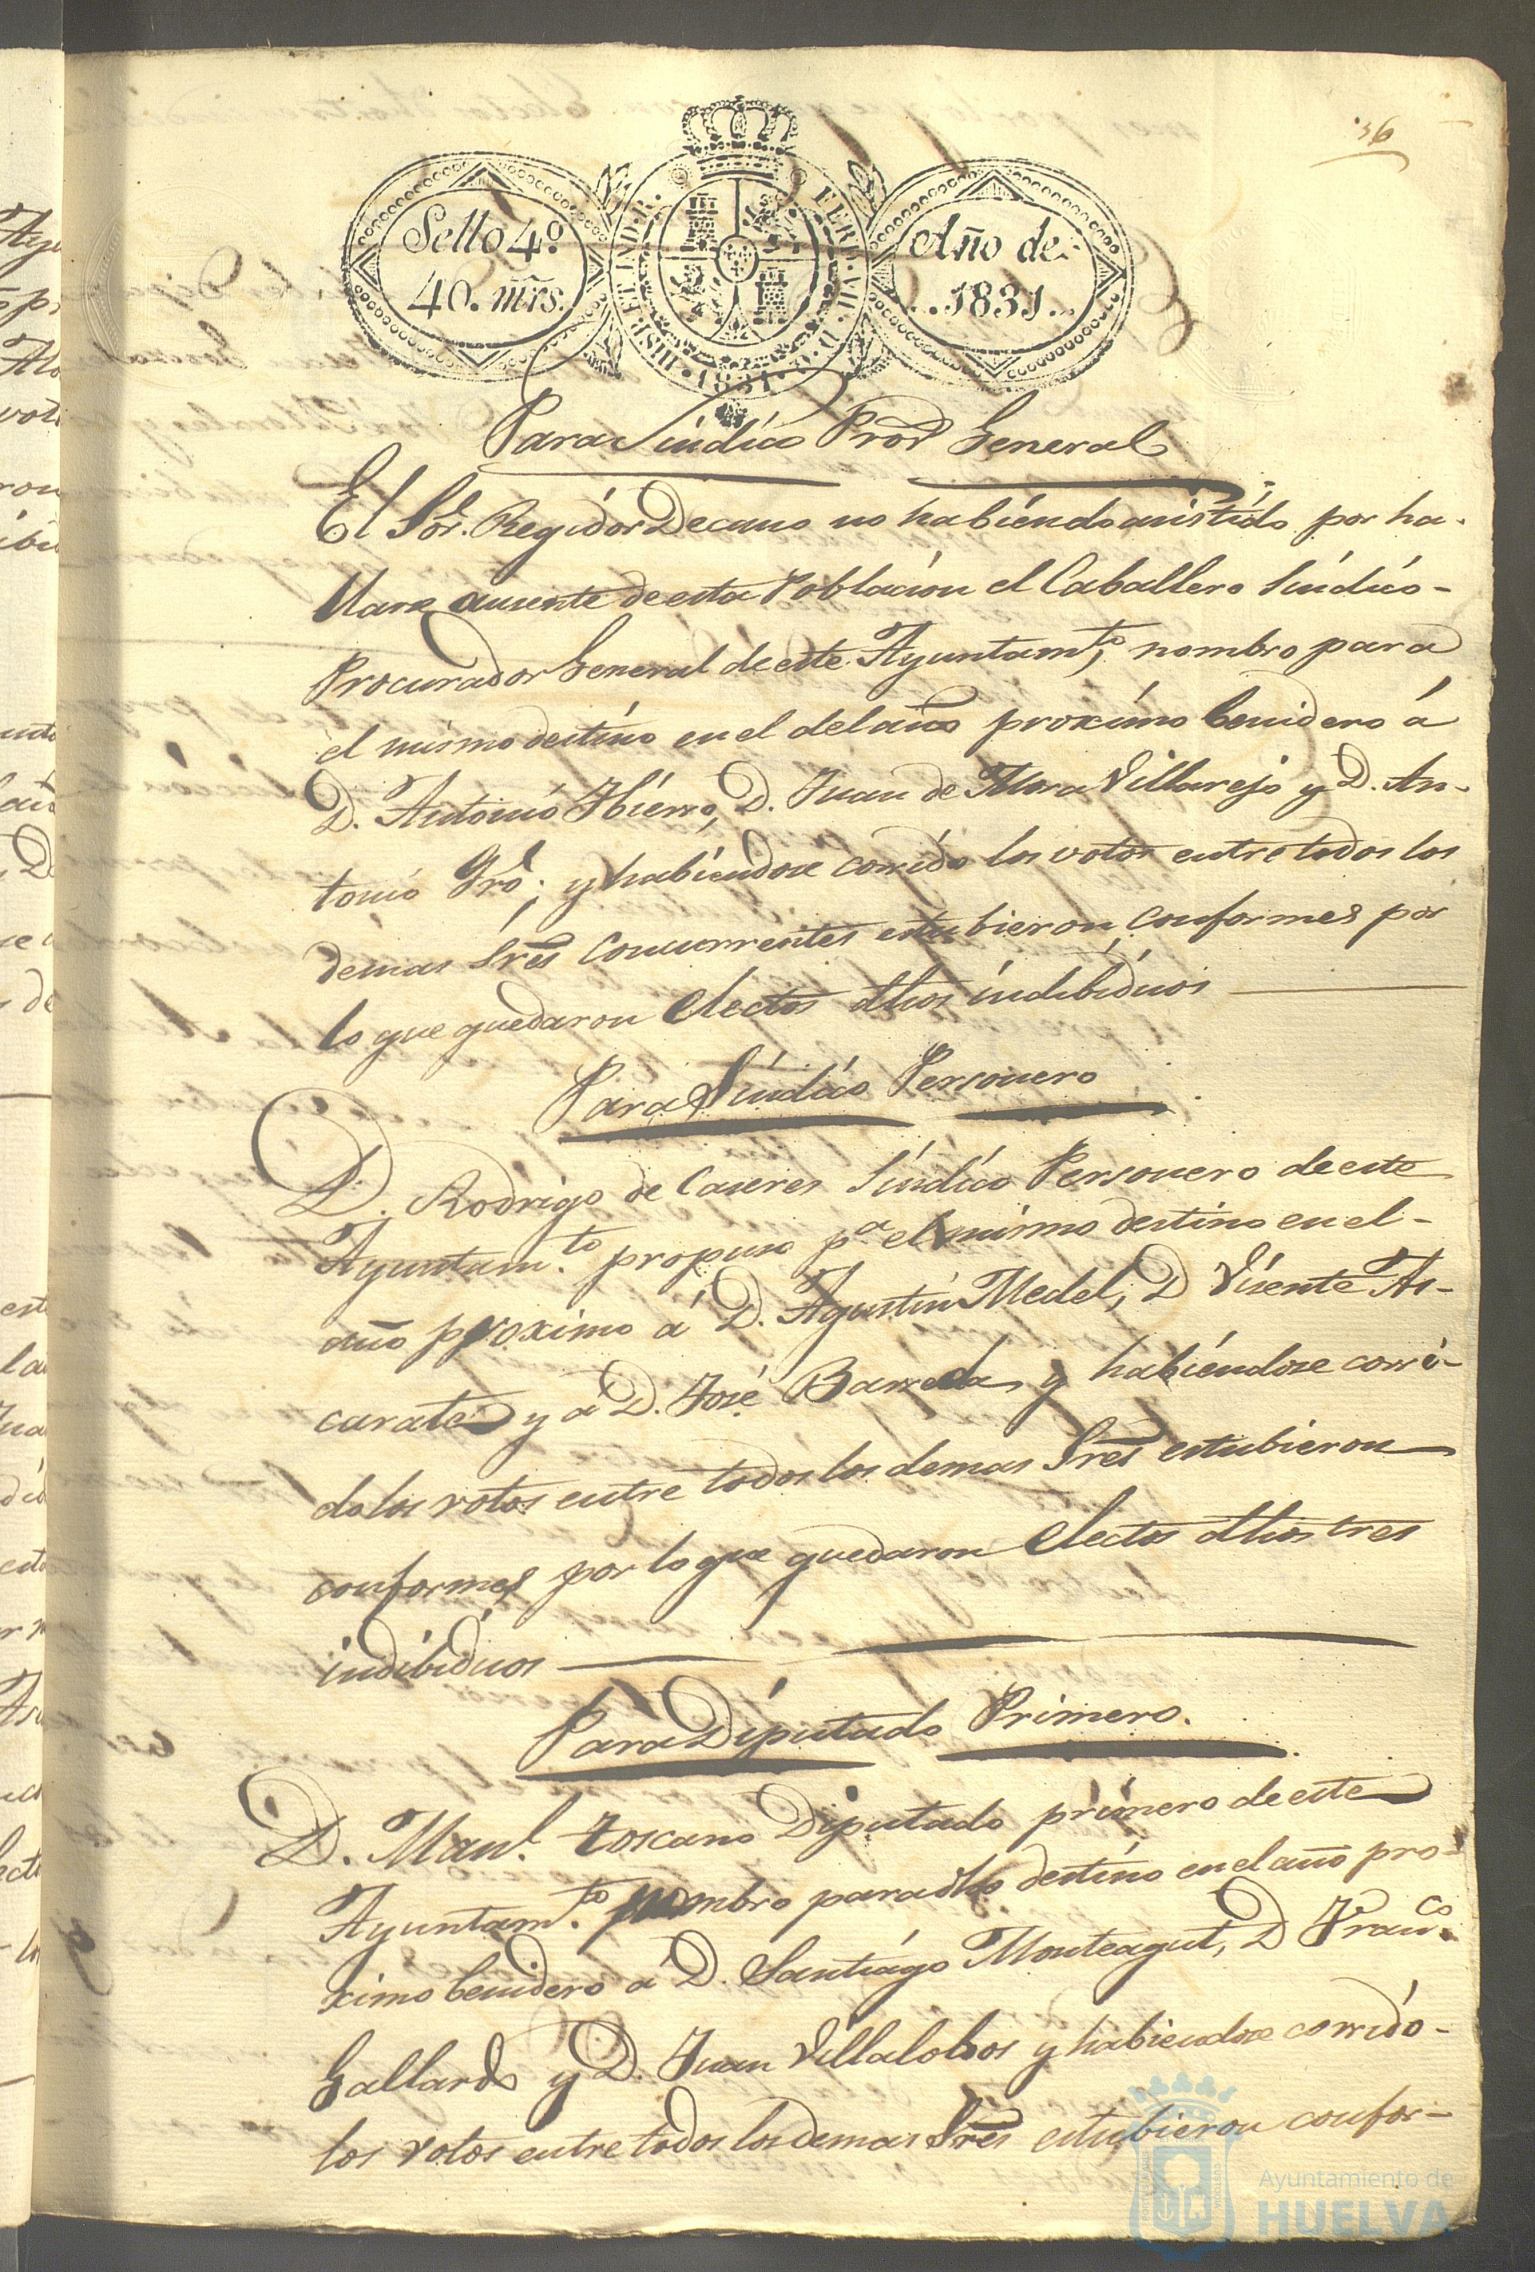 36
Sello 4º
40. mrs.
HISP. ET IND. R.
FERD. VII. D. G.
1831
Año de
1831
Para Sindico Pror General
El Sor. Regidor Decano no habiendo asistido por ha-
llarse ausente de esta Poblacion el Caballero Sindico-
Procurador General de este Ayuntamto, nombro para
el mismo destino en el del año proximo benidero á
D. Antonio Hierro, D. Juan de Mora Villarejo y D. An-
tonio ; y habiendose corrido los votos entre todos los
demas Sres concurrentes estubieron conformes por
lo que quedaron electos dhos indibiduos
Para Sindico Personero
D. Rodrigo de Caseres Sindico Personero de este
Ayuntamto. propuso pa el mismo destino en el-
año proximo á D. Agustin Medel, D Visente As-
carate y á D. José Barreda y habiendose corri-
do los votos entre todos los demas Sres estubieron
conformes por lo que quedaron electos dhos tres
indibiduos
Para Diputado Primero.
D. Manl. Toscano Diputado primero de este
Ayuntamto. nombro para dho destino en el año pro-
ximo benidero á D. Santiago Monteagut, D Franco
Gallardo y D. Juan Villalobos y habiendose corrido-
los votos entre todos los demas Sres estubieron confor-
Ayuntamiento de
HUELVA